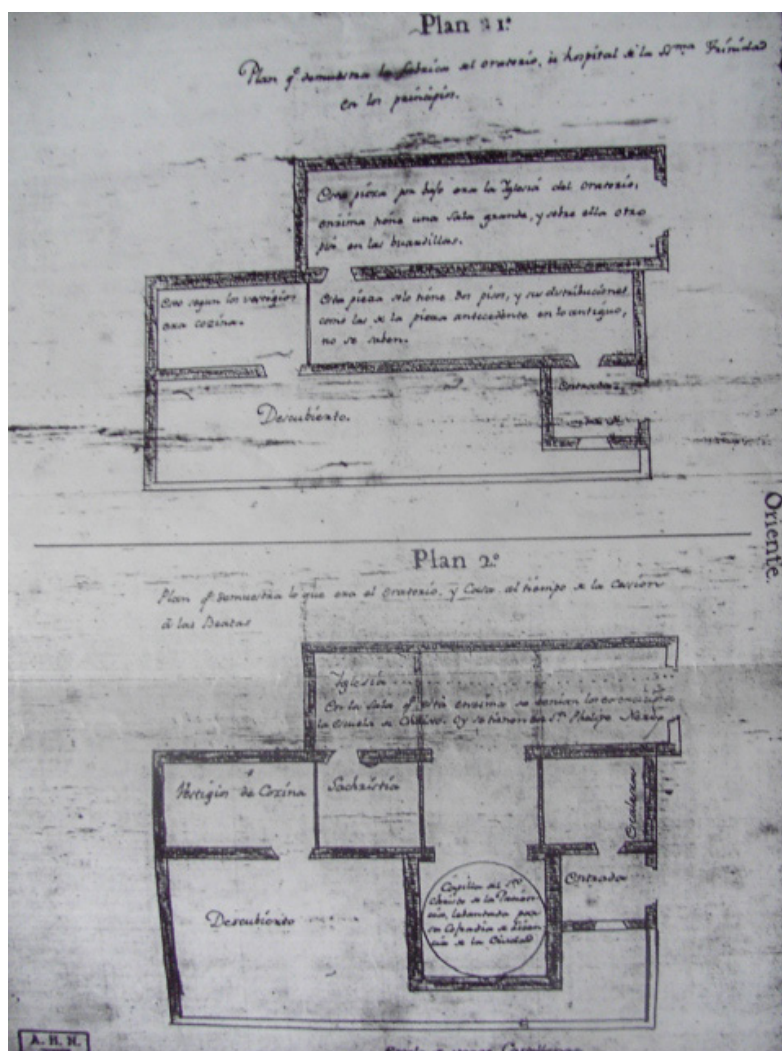 Plan 1º
Plan qº demuestra la fabrica del oratorio, ú hospital de la Sma Trinidad
en los principios.
Esta pieza por bajo era la Iglesia del oratorio,
encima tiene una sala grande, y sobre ella otro
piso en las buardillas.
Esto segun los vestigios
era cozina.
Esta pieza solo tiene dos pisos, y sus distribuciones
como las de la pieza antecedente en lo antiguo,
no se saben.
Entrada
Descubierto.
Oriente.
Plan 2º
Plan qº demuestra lo que era el oratorio, y Casa al tiempo de la
á las Beatas
Iglesia
En la sala qº está encima se tenian los
la escuela de Christo. Oy se tienen de Sn Phelipe Neri
Vestigios de Cozina
Sachristia
Escalera
Capilla del Sto
Christo de la
levantada por
su Cofradia
de la Ciudad
Entrada
Descubierto
A. H. N.